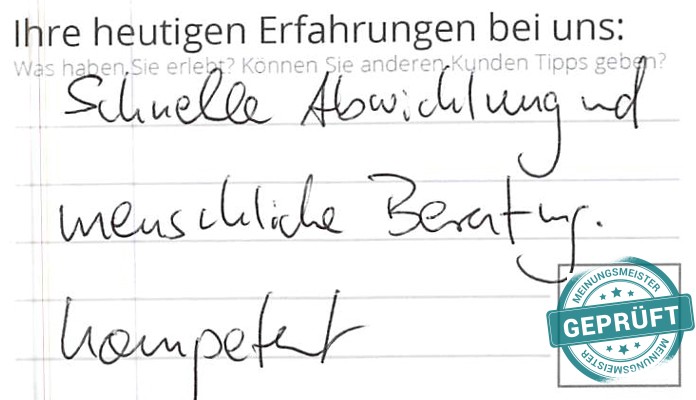 Ihre heutigen Erfahrungen bei uns:
Was haben Sie erlebt? Können Sie anderen Kunden Tipps geben?
Schnelle Abwicklung und
menschliche Beratung.
kompetent
MEINUNGSMEISTER
GEPRÜFT
MEINUNGSMEISTER